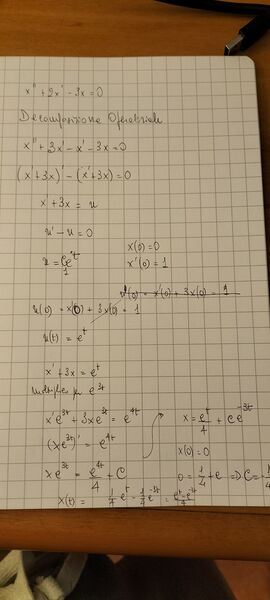 x'' + 2x' - 3x = 0
Decomposizione Operatoriale
x'' + 3x' - x' - 3x = 0
(x + 3x)' - (x' + 3x) = 0
x + 3x = u
u' - u = 0
u = Ce^t
1
x(0) = 0
x'(0) = 1
u(0) = x'(0) + 3x(0) = 1
u(0) = x'(0) + 3x(0) = 1
u(t) = e^t
x' + 3x = e^t
e^3t
x'e^3t + 3xe^3t = e^4t
(xe^3t)' = e^4t
xe^3t = e^4t/4 + C
x = e^t/4 + ce^-3t
x(0) = 0
0 = 1/4 + c => C = -1/4
x(t) = 1/4 e^t - 1/4 e^-3t = (e^t - e^-3t)/4